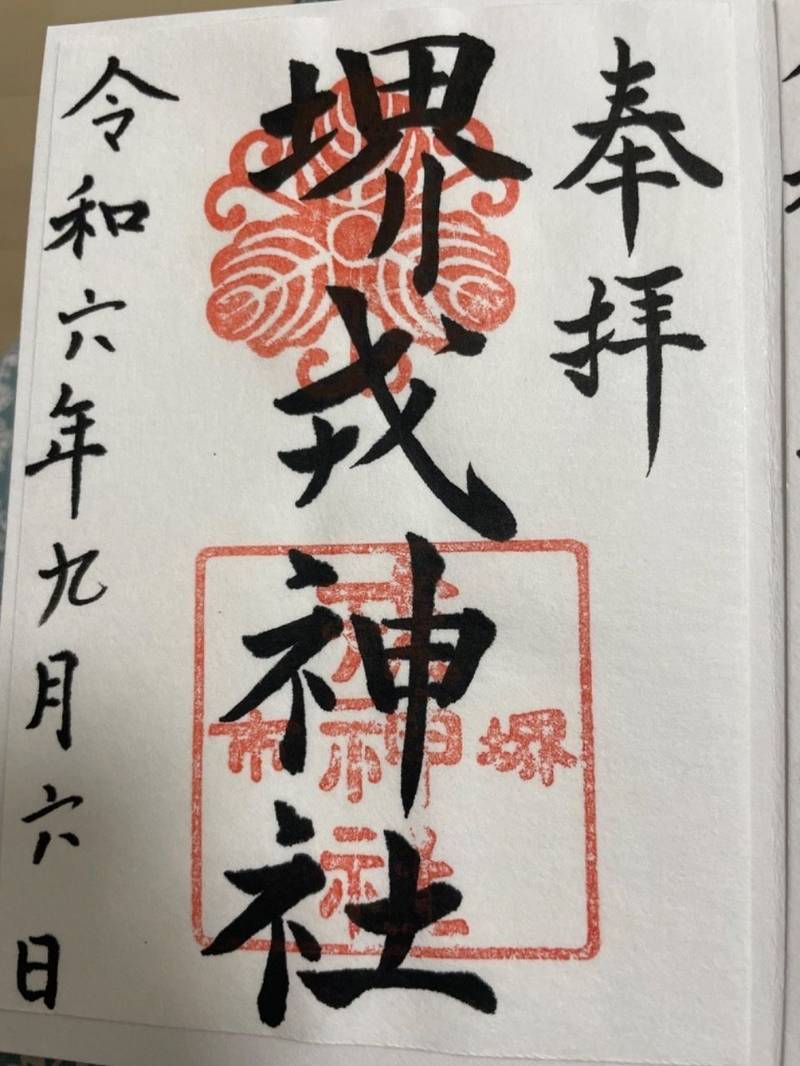 奉拝
堺戎神社
堺市
戎神社
令和六年九月六日